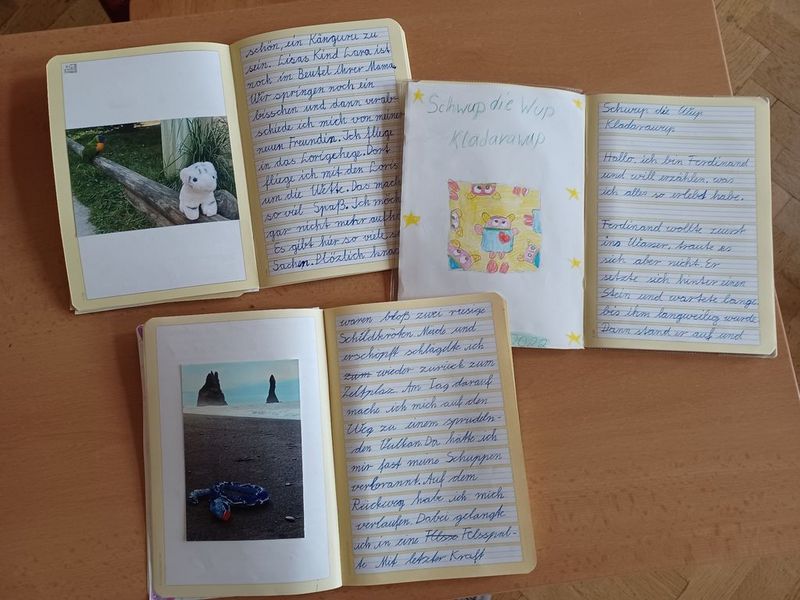 schön, ein Känguru zu
sein. Lisas Kind Lara ist
noch im Beutel ihrer Mama.
Wir springen noch ein
bisschen und dann verab-
schiede ich mich von meiner
neuen Freundin. Ich fliege
in das Lorigehege. Dort
fliege ich mit den Loris
um die Wette. Das macht
so viel Spaß. Ich möch
gar nicht mehr aufhö
Es gibt hier so viele sch
Sachen. Plözlich knac
Schwup die Wup
Kladarawup
2022
Schwup die Wup
Kladarawup
Hallo, ich bin Ferdinand
und will erzählen, was
ich alles so erlebt habe.
Ferdinand wollte zuerst
ins Wasser, traute es
sich aber nicht. Er
setzte sich hinter einen
Stein und wartete lange,
bis ihm langweilig wurde.
Dann stand er auf und
waren bloß zwei riesige
Schildkröten. Müde und
erschöpft schlägelte ich
zum wieder zurück zum
Zeltplaz. Am Tag darauf
mache ich mich auf den
Weg zu einem sprudeln-
den Vulkan. Da hätte ich
mir fast meine Schuppen
verbrannt. Auf dem
Rückweg habe ich mich
verlaufen. Dabei gelangte
ich in eine Felsspal-
te Mit letzter Kraft